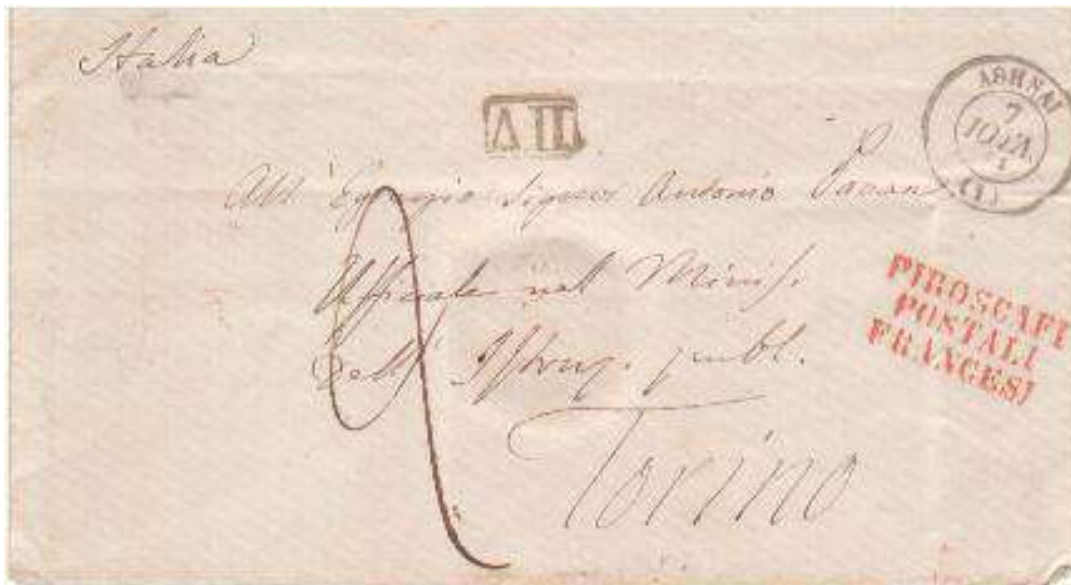 Italia
ΑΘΗΝΑΙ
7
ΙΟΥΛ
(1)
ΔΠ
All' Egregio Signor Antonio
Ufficiale nel Minis.
dell' Istruz. pubbl.
Torino
PIROSCAFI
POSTALI
FRANCESI